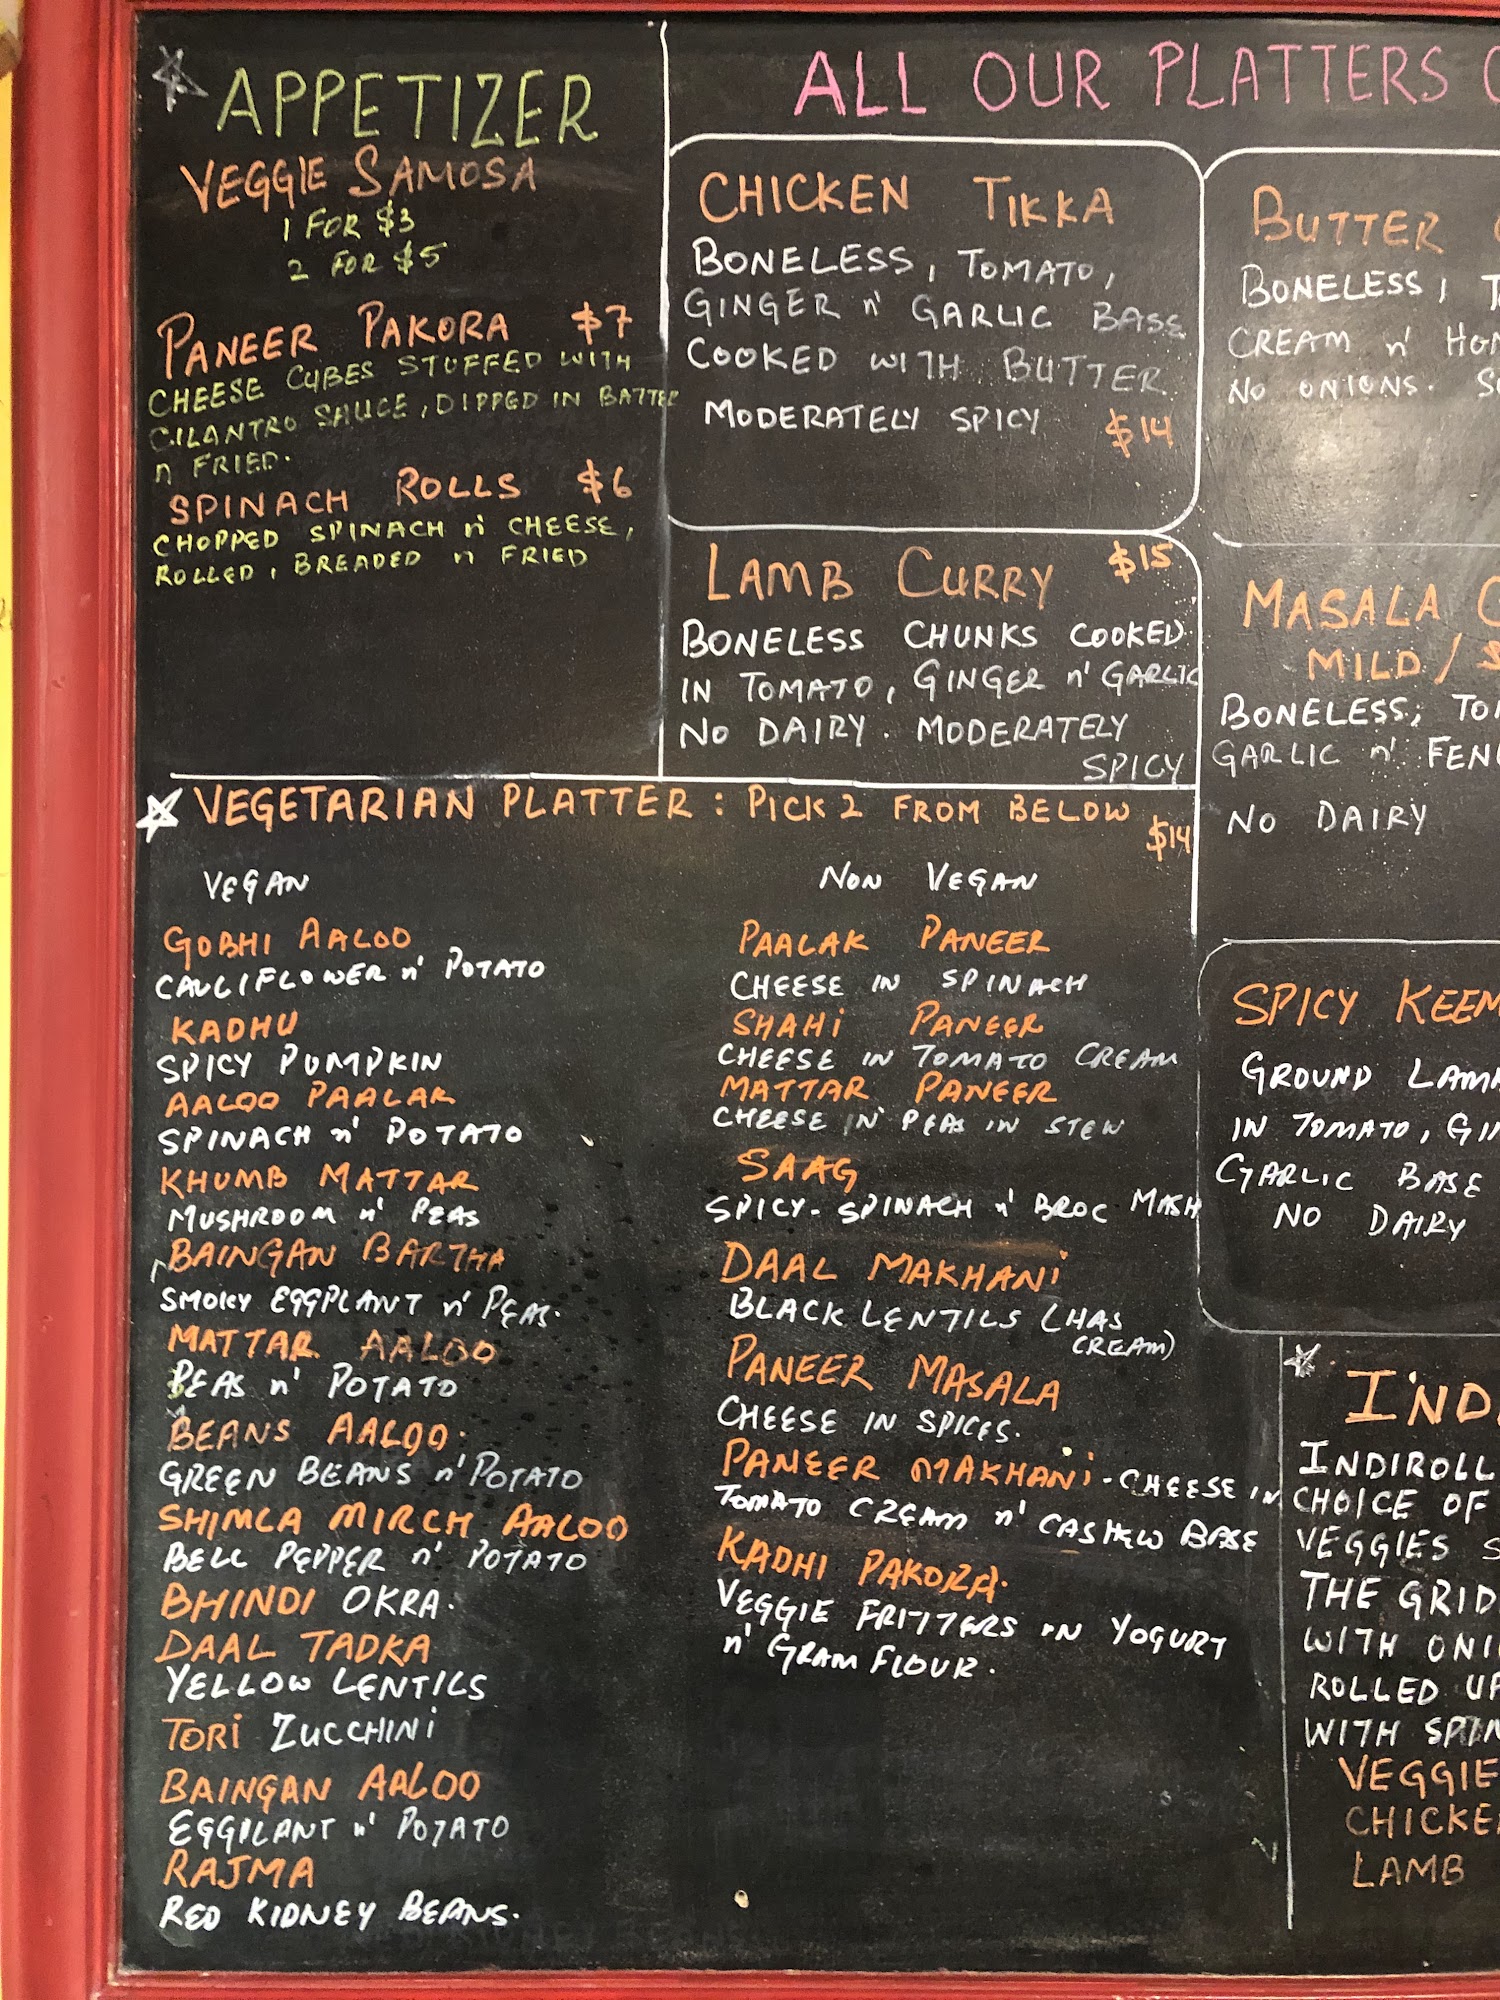 APPETIZER
VEGGIE SAMOSA
1 FOR $3
2 FOR $5
PANEER PAKORA $7
CHEESE CUBES STUFFED WITH
CILANTRO SAUCE, DIPPED IN BATTER
n FRIED.
SPINACH ROLLS $6
CHOPPED SPINACH n' CHEESE,
ROLLED, BREADED n FRIED
ALL OUR PLATTERS
CHICKEN TIKKA
BONELESS, TOMATO,
GINGER n' GARLIC BASE
COOKED WITH BUTTER
MODERATELY SPICY $14
LAMB CURRY $15
BONELESS CHUNKS COOKED
IN TOMATO, GINGER n' GARLIC
NO DAIRY. MODERATELY
SPICY
BUTTER
BONELESS,
CREAM n'
NO ONIONS.
MASALA
MILD /
BONELESS,
GARLIC n'
NO DAIRY
SPICY
GROUND
IN TOMATO,
GARLIC BASE
NO DAIRY
VEGETARIAN PLATTER: PICK 2 FROM BELOW $14
VEGAN
GOBHI AALOO
CAULIFLOWER n' POTATO
KADHU
SPICY PUMPKIN
AALOO PAALAK
SPINACH n' POTATO
KHUMB MATTAR
MUSHROOM n' PEAS
BAINGAN BARTHA
SMOKY EGGPLANT n' PEAS.
MATTAR AALOO
PEAS n' POTATO
BEANS AALOO.
GREEN BEANS n' POTATO
SHIMLA MIRCH AALOO
BELL PEPPER n' POTATO
BHINDI OKRA.
DAAL TADKA
YELLOW LENTILS
TORI ZUCCHINI
BAINGAN AALOO
EGGPLANT n' POTATO
RAJMA
RED KIDNEY BEANS.
NON VEGAN
PAALAK PANEER
CHEESE IN SPINACH
SHAHI PANEER
CHEESE IN TOMATO CREAM
MATTAR PANEER
CHEESE IN' PEAS IN STEW
SAAG
SPICY. SPINACH n' BROC MASH
DAAL MAKHANI
BLACK LENTILS (HAS
CREAM)
PANEER MASALA
CHEESE IN SPICES.
PANEER MAKHANI - CHEESE IN
TOMATO CREAM n' CASHEW BASE
KADHI PAKORA.
VEGGIE FRITTERS IN YOGURT
n' GRAM FLOUR.
INDIROLL
CHOICE OF
VEGGIES
THE
WITH
ROLLED
WITH
VEGGIE
LAMB